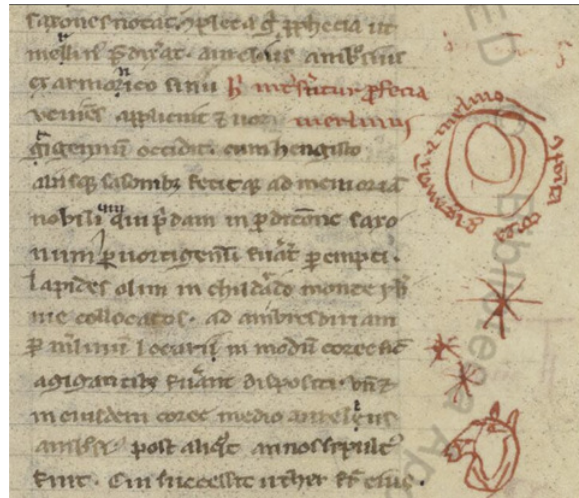 saxones notat. ɔpleta ē ꝓphecia ut
merlinꝰ p̄dixͬat. aureliꝰ ambrosiꝰ
et armorico sinu hͨ inseritur ꝓfecia
veniēs applicuit ⁊ uort merlinus
gigernū occidit. cum hengisto
aliisqꝫ saxonibꝫ fecitqꝫ ad memoriā
nobiliū qui p̄dam in ꝓditiōne saxo
num ꝑ uortigernū fuͣāt ꝑempti.
lapides olim in childaͣo monte yb̄
nie collocatos. ad ambresbiriam
ꝑ mͦlinū locutū in modū coree sic
a gigantibꝫ fuͣant dispositi. vn̄ ⁊
in eiusdem coree medio aureliꝰ
ambrͦ. post aliqͦt annos sepultꝰ
fuit. Cui successit uther fr̄ eius.
corea gigantū a merlino